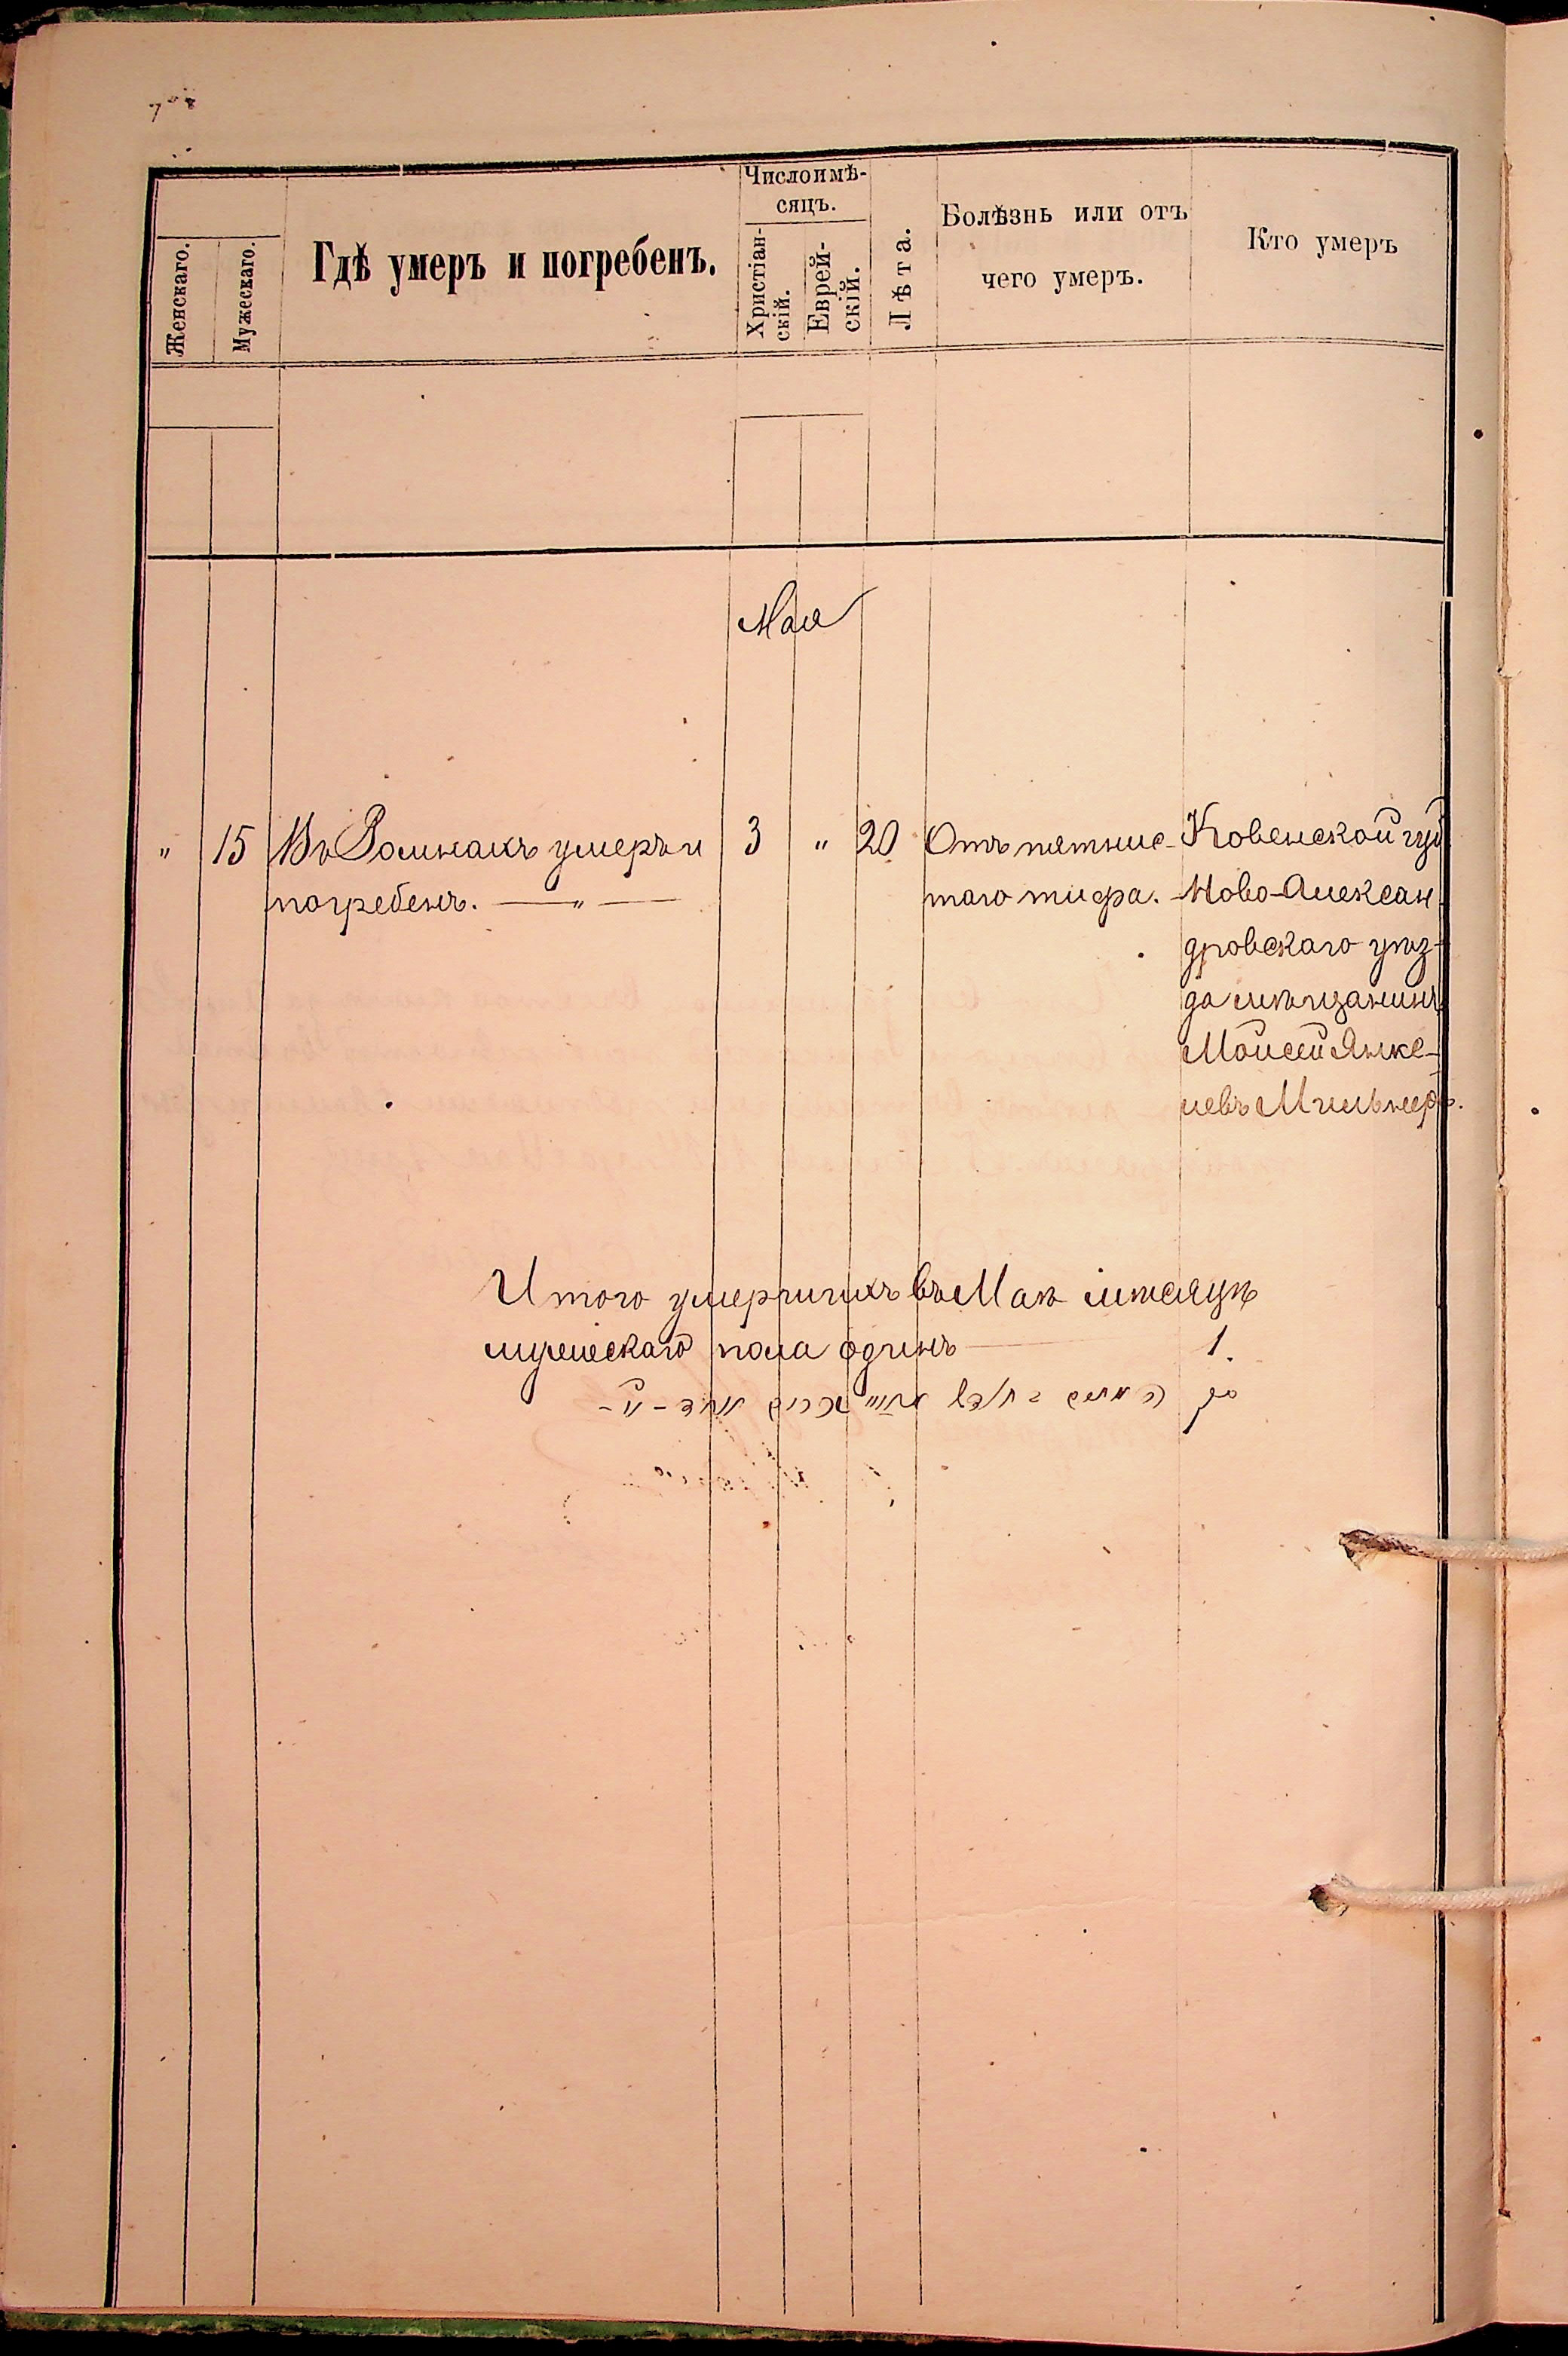 Женскаго.
Мужескаго.
Гдѣ умеръ и погребенъ.
Число и мѣ-
сяцъ.
Христіан-
скій.
Еврей-
скій.
Лѣта.
Болѣзнь или отъ
чего умеръ.
Кто умеръ
Мая
" 15 Въ умеръ и
погребенъ. — " —
3 " 20
Отъ пятнис-
таго тифа.
Ковенской губ
Ново-Алексан
дровскаго уѣз-
да мѣщанинъ
Мойсей Янке-
левъ Мильнеръ.
Итого умершихъ въ Маѣ мѣсяцѣ
мужескаго пола одинъ — 1.